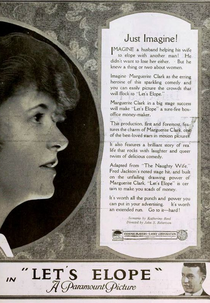 Just Imagine!
IMAGINE a husband helping his wife
to elope with another man! He
didn't want to lose her either. But he
knew a thing or two about women.
Imagine Marguerite Clark as the erring
heroine of this sparkling comedy and
you can easily picture the crowds that
will flock to "Let's Elope."
Marguerite Clark in a big stage success
will make "Let's Elope" a sure-fire box-
office money-maker.
This production, first and foremost, fea-
tures the charm of Marguerite Clark, one
of the best-loved stars in motion pictures.
It also features a brilliant story of real
life that rocks with laughter and queer
twists of delicious comedy.
Adapted from "The Naughty Wife,"
Fred Jackson's noted stage hit, and built
on the unfailing drawing power of
Marguerite Clark, "Let's Elope" is cer-
tain to make you
It's worth all the punch and power you
can put in your advertising. It's worth
an extended run. Go to it—hard!
Scenario by Katherine Reed
Directed by John S. Robertson
IN "LET'S ELOPE"
A Paramount Picture